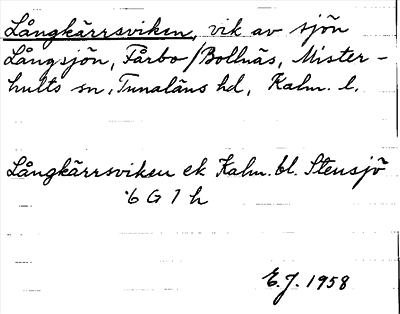 Långkärrsviken, vik av sjön
Långsjön, Fårbo/Bollnäs, Mister-
hults sn, Tunaläns hd, Kalm. l.
Långkärrsviken ek Kalm. bl. Stensjö
6 G 1 h
E.J. 1958